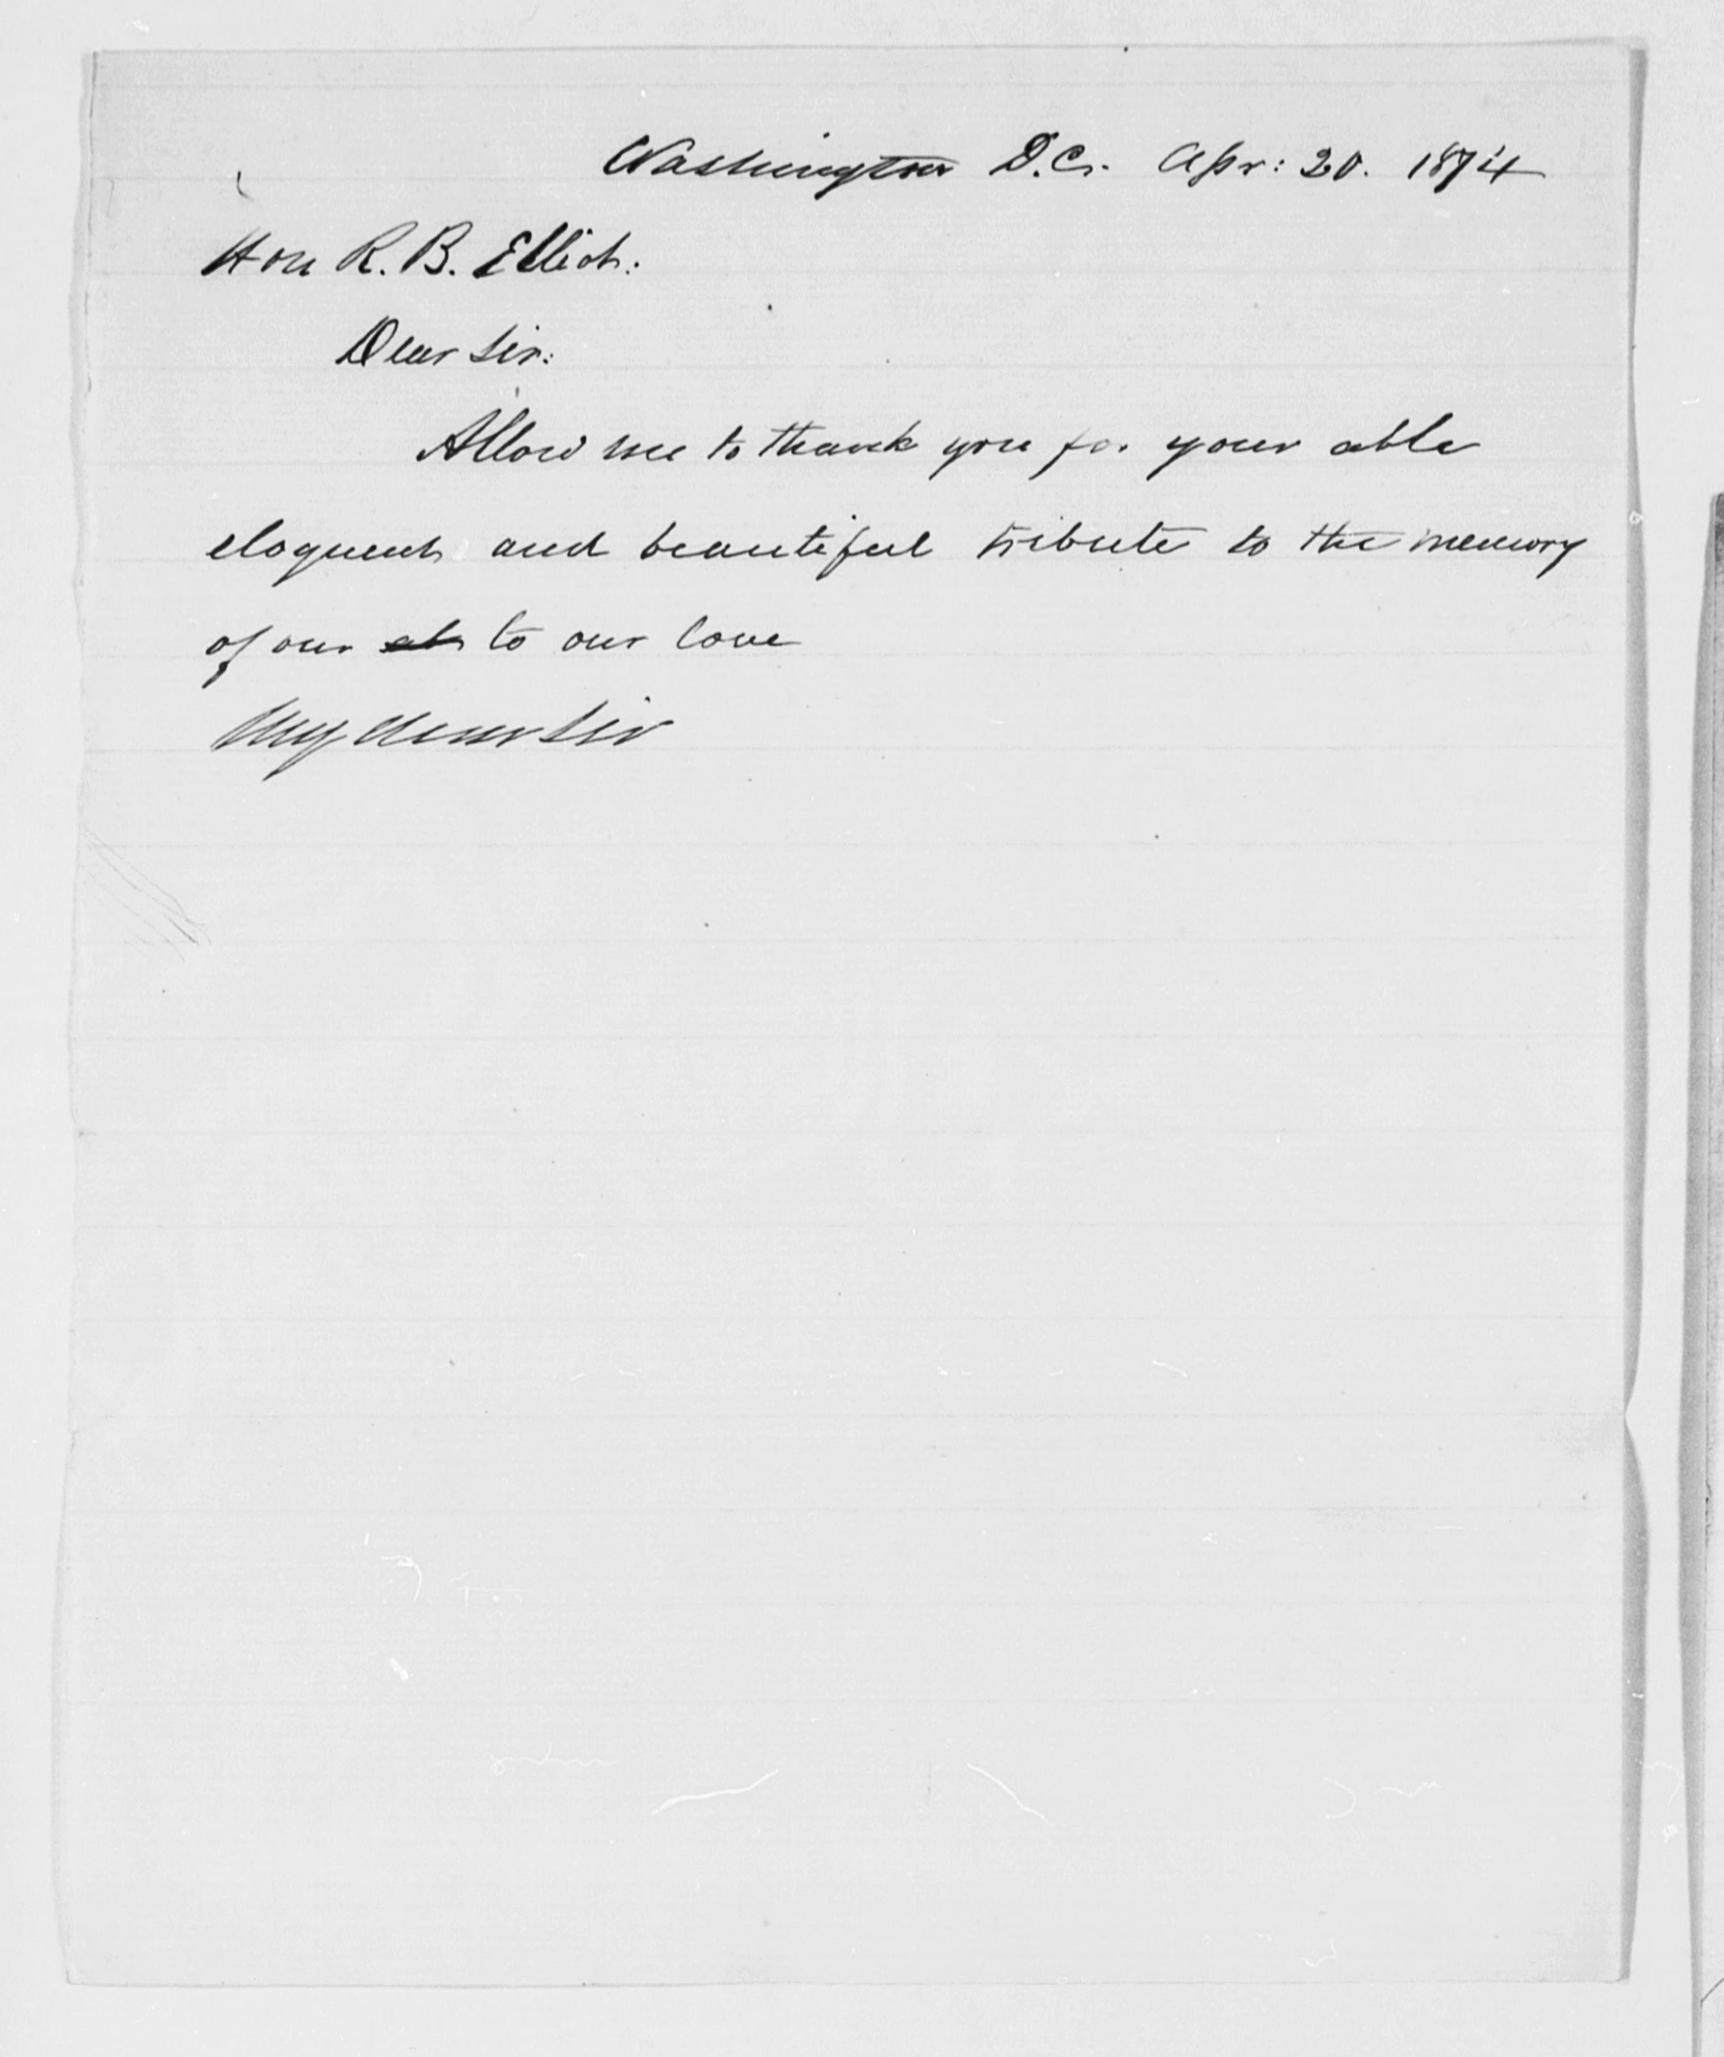 Washington D.C. Apr: 20. 1874
Hon R. B. Elliot:
Dear Sir:
Allow me to thank you for your able
eloquent and beautiful tribute to the memory
of our to our love
My dear Sir